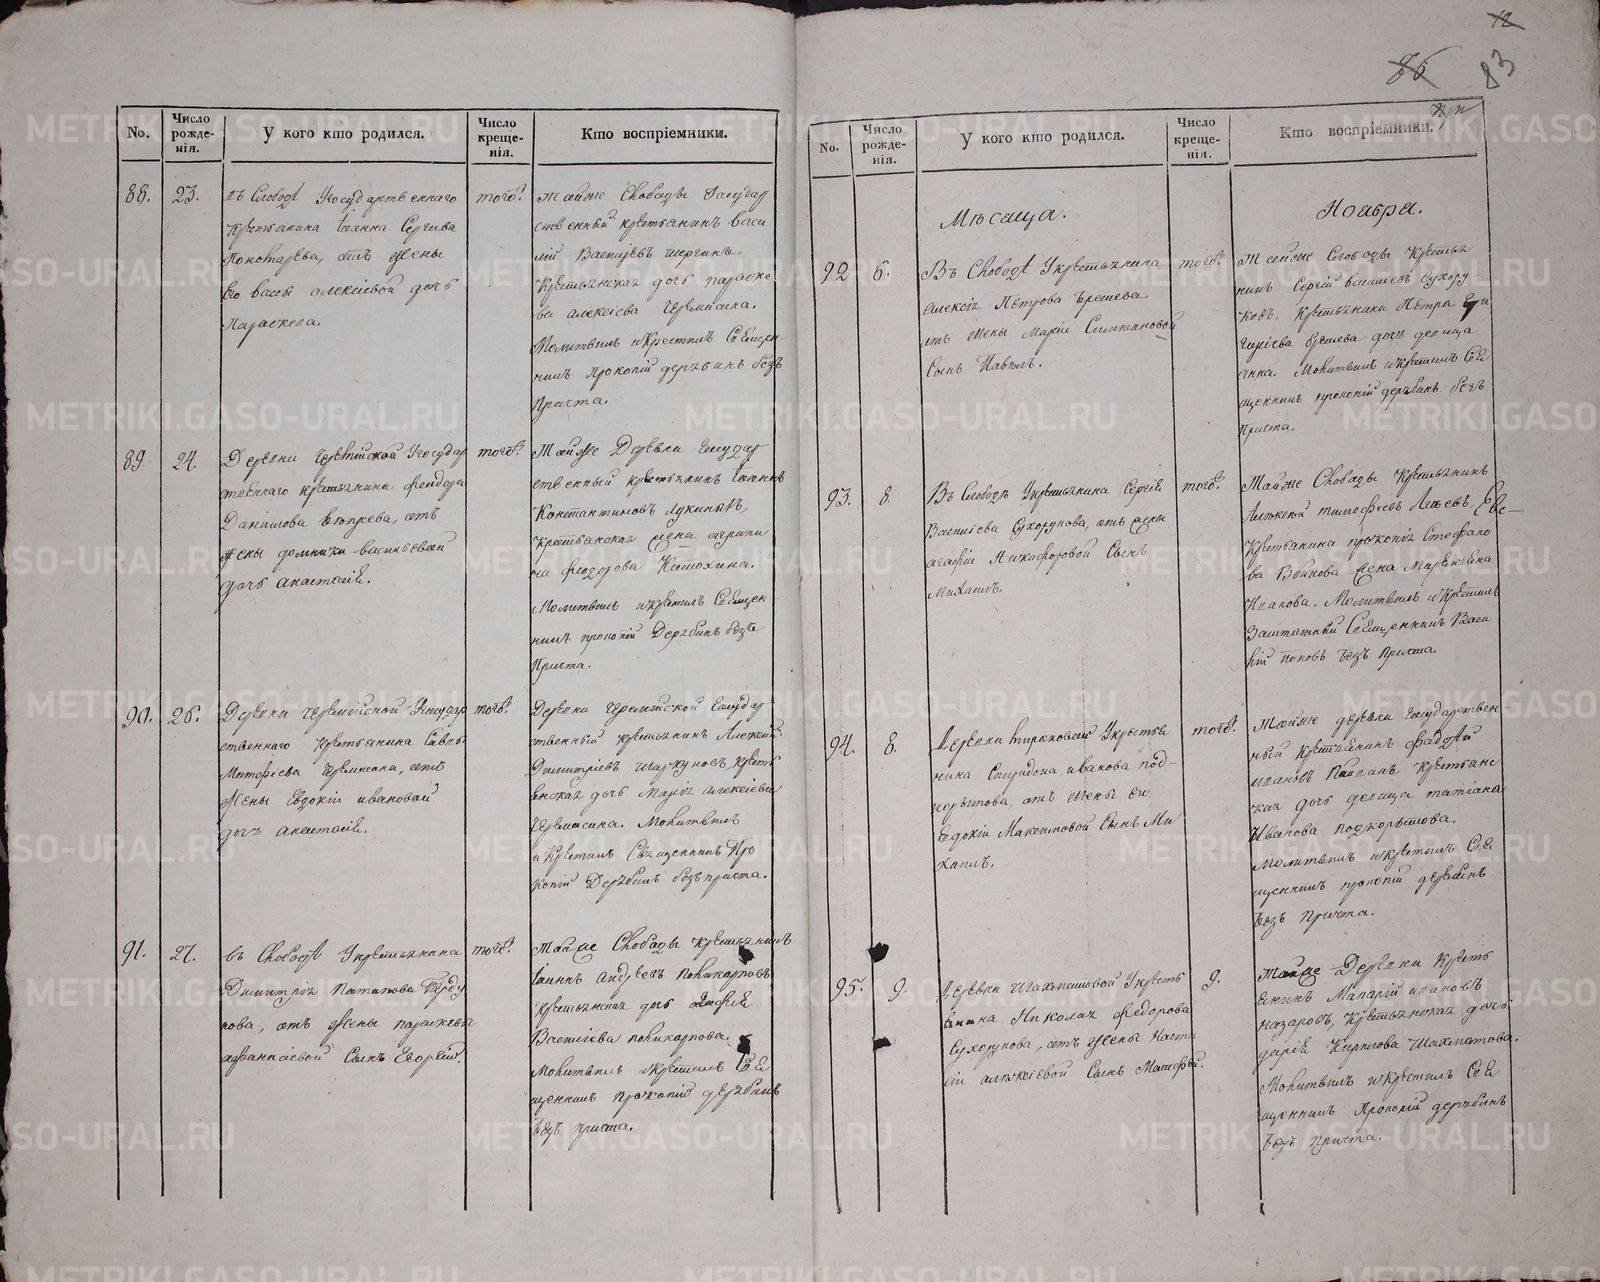 12
86
83
No.
Число рожде-нія.
У кого кто родился.
Число креще-нія.
Кто воспріемники.
88.
23.
въ Слободѣ У государственнаго
крестьянина Іоанна Сергѣева
Пономарева, отъ жены
его вассы алексіевой дочь
Параскева.
того.
тойже Слободы Государ
ственный крестьянинъ Васи
лій
Крестьянская дочь параске
ва алексіева Черемисина.
Молитвилъ и крестилъ Священ-
никъ прокопій дерябинъ безъ
Причта.
89.
24.
Деревни Черемисской У государ
ственнаго крестьянина феодора
Даніилова отъ
жены домники васильевой
дочь анастасія.
того.
Тойже Деревни Государ
ственный крестьянинъ Іоаннъ
Константиновъ Лукиныхъ,
крестьянская жена агрипи
на феодорова
Молитвилъ и крестилъ Священ
никъ прокопій Дерябинъ безъ
Причта.
90.
26.
Деревни Черемисской У государ
ственнаго крестьянина Саввы
Матфіева Черемисина, отъ
жены Евдокіи ивановой
дочь анастасія.
того.
Деревни Черемисской Государ
ственный крестьянинъ Алексій
Димитріевъ Шаркуновъ, кресть
янская дочь Марія алексіева
Черемисина. Молитвилъ
и крестилъ Священникъ Про
копій Дерябинъ безъ причта.
91.
27.
въ Слободѣ У крестьянина
Димитрія Потапова
отъ жены параскевы
афанасіевой Сынъ Георгій.
того.
Тойже Слободы крестьянинъ
Іоаннъ Андреевъ поликарповъ
крестьянская дочь
Василіева поликарпова.
Молитвилъ и крестилъ Свя
щенникъ прокопій дерябинъ
безъ причта.
No.
Число рожде-нія.
У кого кто родился.
Число креще-нія.
Кто воспріемники.
Мѣсяца.
Ноября.
92
6.
Въ Слободѣ У крестьянина
Алексія Петрова Ерещева
отъ жены Маріи Симеановой
Сынъ Павелъ.
того.
Тойже Слободы Крестья
нинъ Сергій василіевъ Сухору-
ковъ. Крестьянина Петра
Ерещева дочь девица
анна. Молитвилъ и крестилъ Свя
щенникъ прокопій дерябинъ безъ
Причта.
93.
8.
Въ Слободѣ У крестьянина Сергія
Василіева Сухорукова, отъ жены
агафіи Никифоровой Сынъ
Михаилъ.
того.
Тойже Слободы Крестьянинъ
Алексій тимофеевъ
Крестьянина прокопія Стефано
ва Войнова жена Маріамна
Иванова. Молитвилъ и крестилъ
Заштатный Священникъ Васи
лій поповъ безъ причта.
94.
8.
Деревни У крестья
нина Спиридона иванова под-
корытова, отъ жены его
Евдокіи Максимовой Сынъ Ми
хаилъ.
того.
Тойже деревни Государствен-
ный крестьянинъ фадей
ивановъ крестьянс
кая дочь девица татіана
Иванова подкорытова.
Молитвилъ и крестилъ Свя
щенникъ прокопій дерябинъ
безъ Причта.
95.
9.
Деревни Шахматовой У кресть
янина Николая Федорова
Сухорукова, отъ жены Наста
сіи алексіевой Сынъ Матфей.
9.
Тойже Деревни Кресть
янинъ Макарій ивановъ
назаровъ, Крестьянская дочь
дарія Кирилова Шахматова.
Молитвилъ и крестилъ Свя
щенникъ Прокопій дерябинъ
безъ Причта.
METRIKI.GASO-URAL.RU